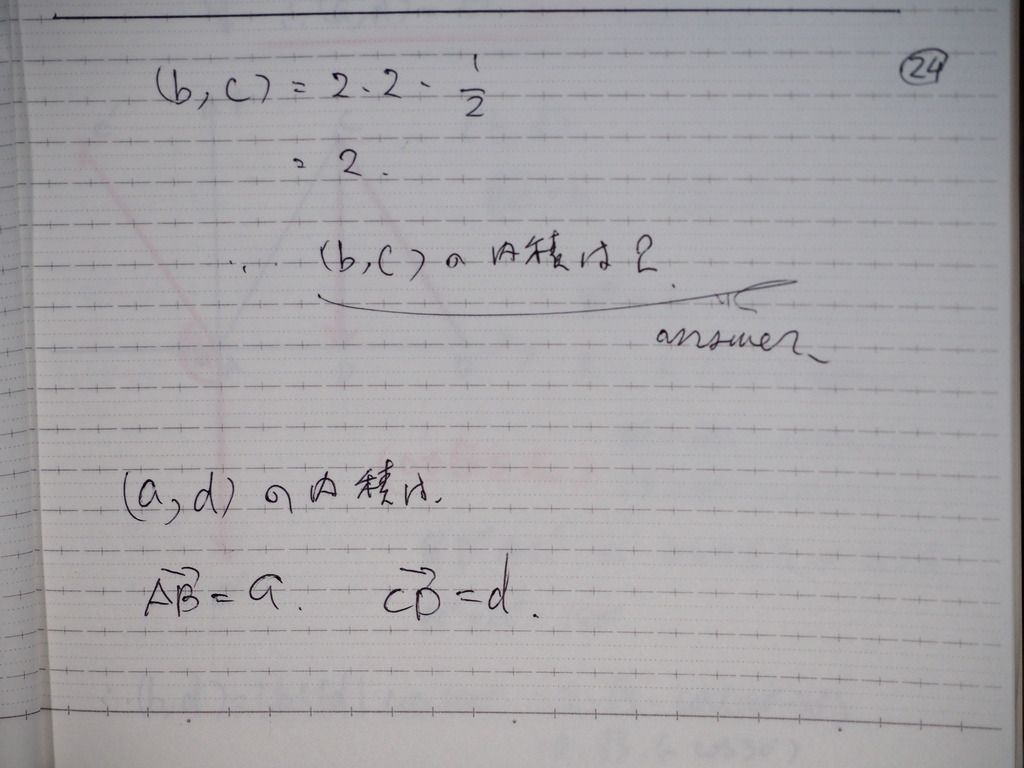 24
(b, c) = 2・2・1/2
= 2.
∴ (b, c) の内積は 2.
answer
(a, d) の内積は.
AB→ = a. CD→ = d.